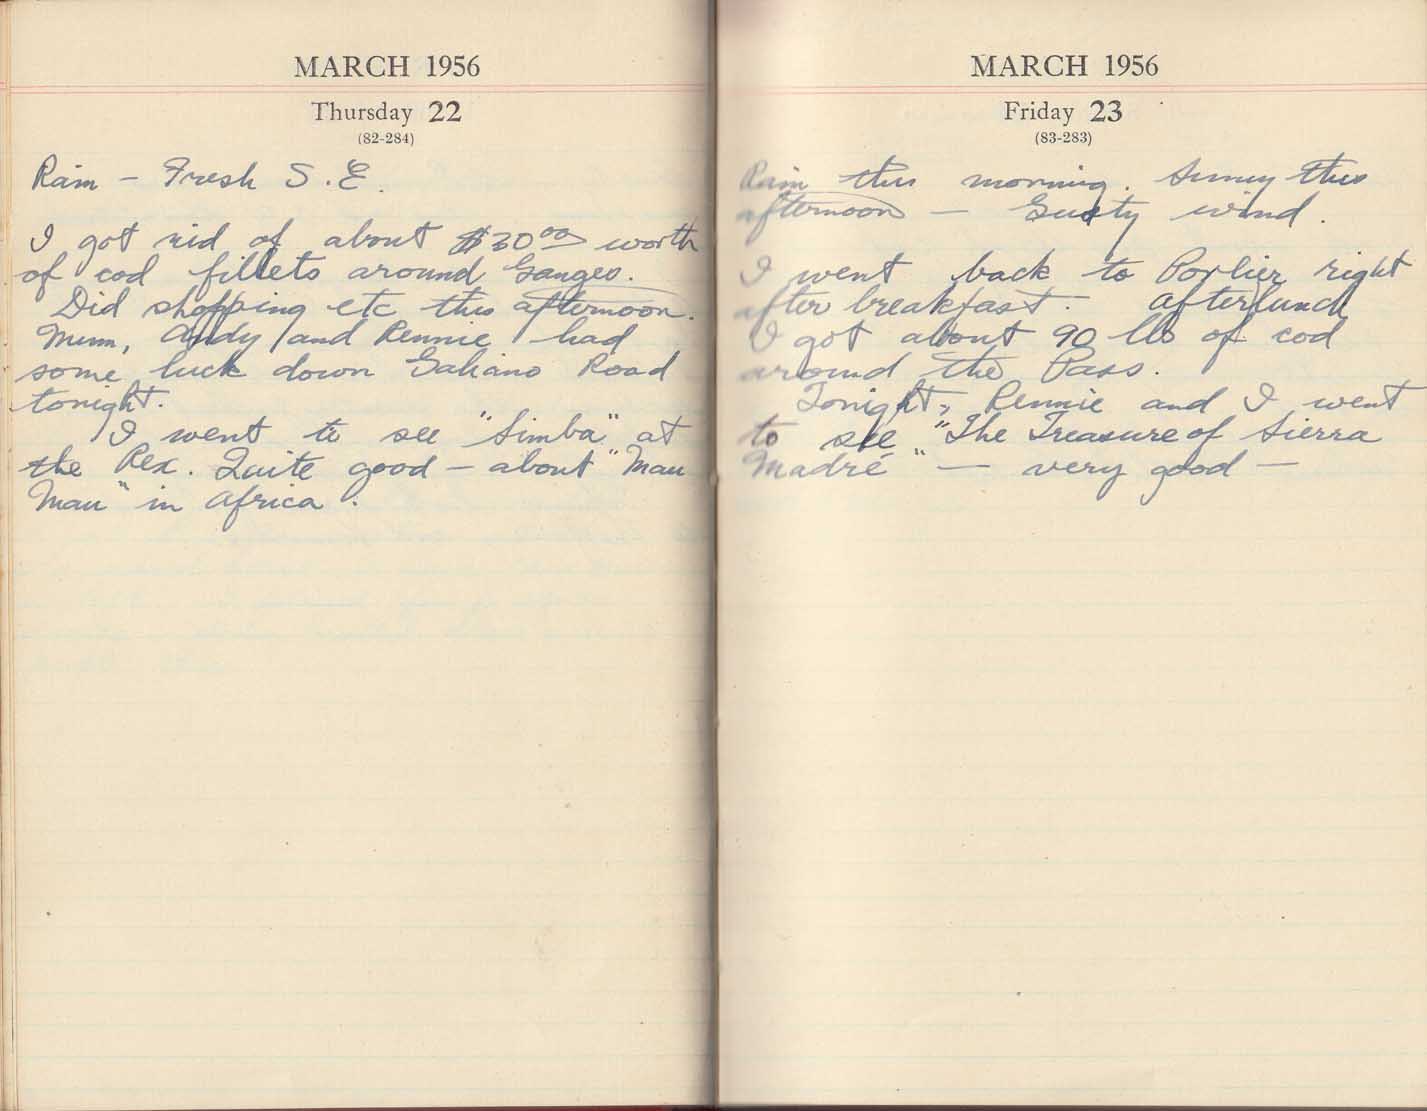 MARCH 1956
Thursday 22
(82-284)
Rain - Fresh S.E.
I got rid of about $30.00 worth
of cod fillets around Ganges.
Did shopping etc this afternoon.
Mum, Andy and Rennie had
some luck down Galiano Road
tonight.
I went to see "Simba" at
the Rex. Quite good - about "Mau
Mau" in Africa.
MARCH 1956
Friday 23
(83-283)
Rain this morning. Sunny this
afternoon - Gusty wind.
I went back to Porlier right
after breakfast. Afterlunch
I got about 90 lbs of cod
around the Pass.
Tonight, Rennie and I went
to see "The Treasure of Sierra
Madré" - very good -